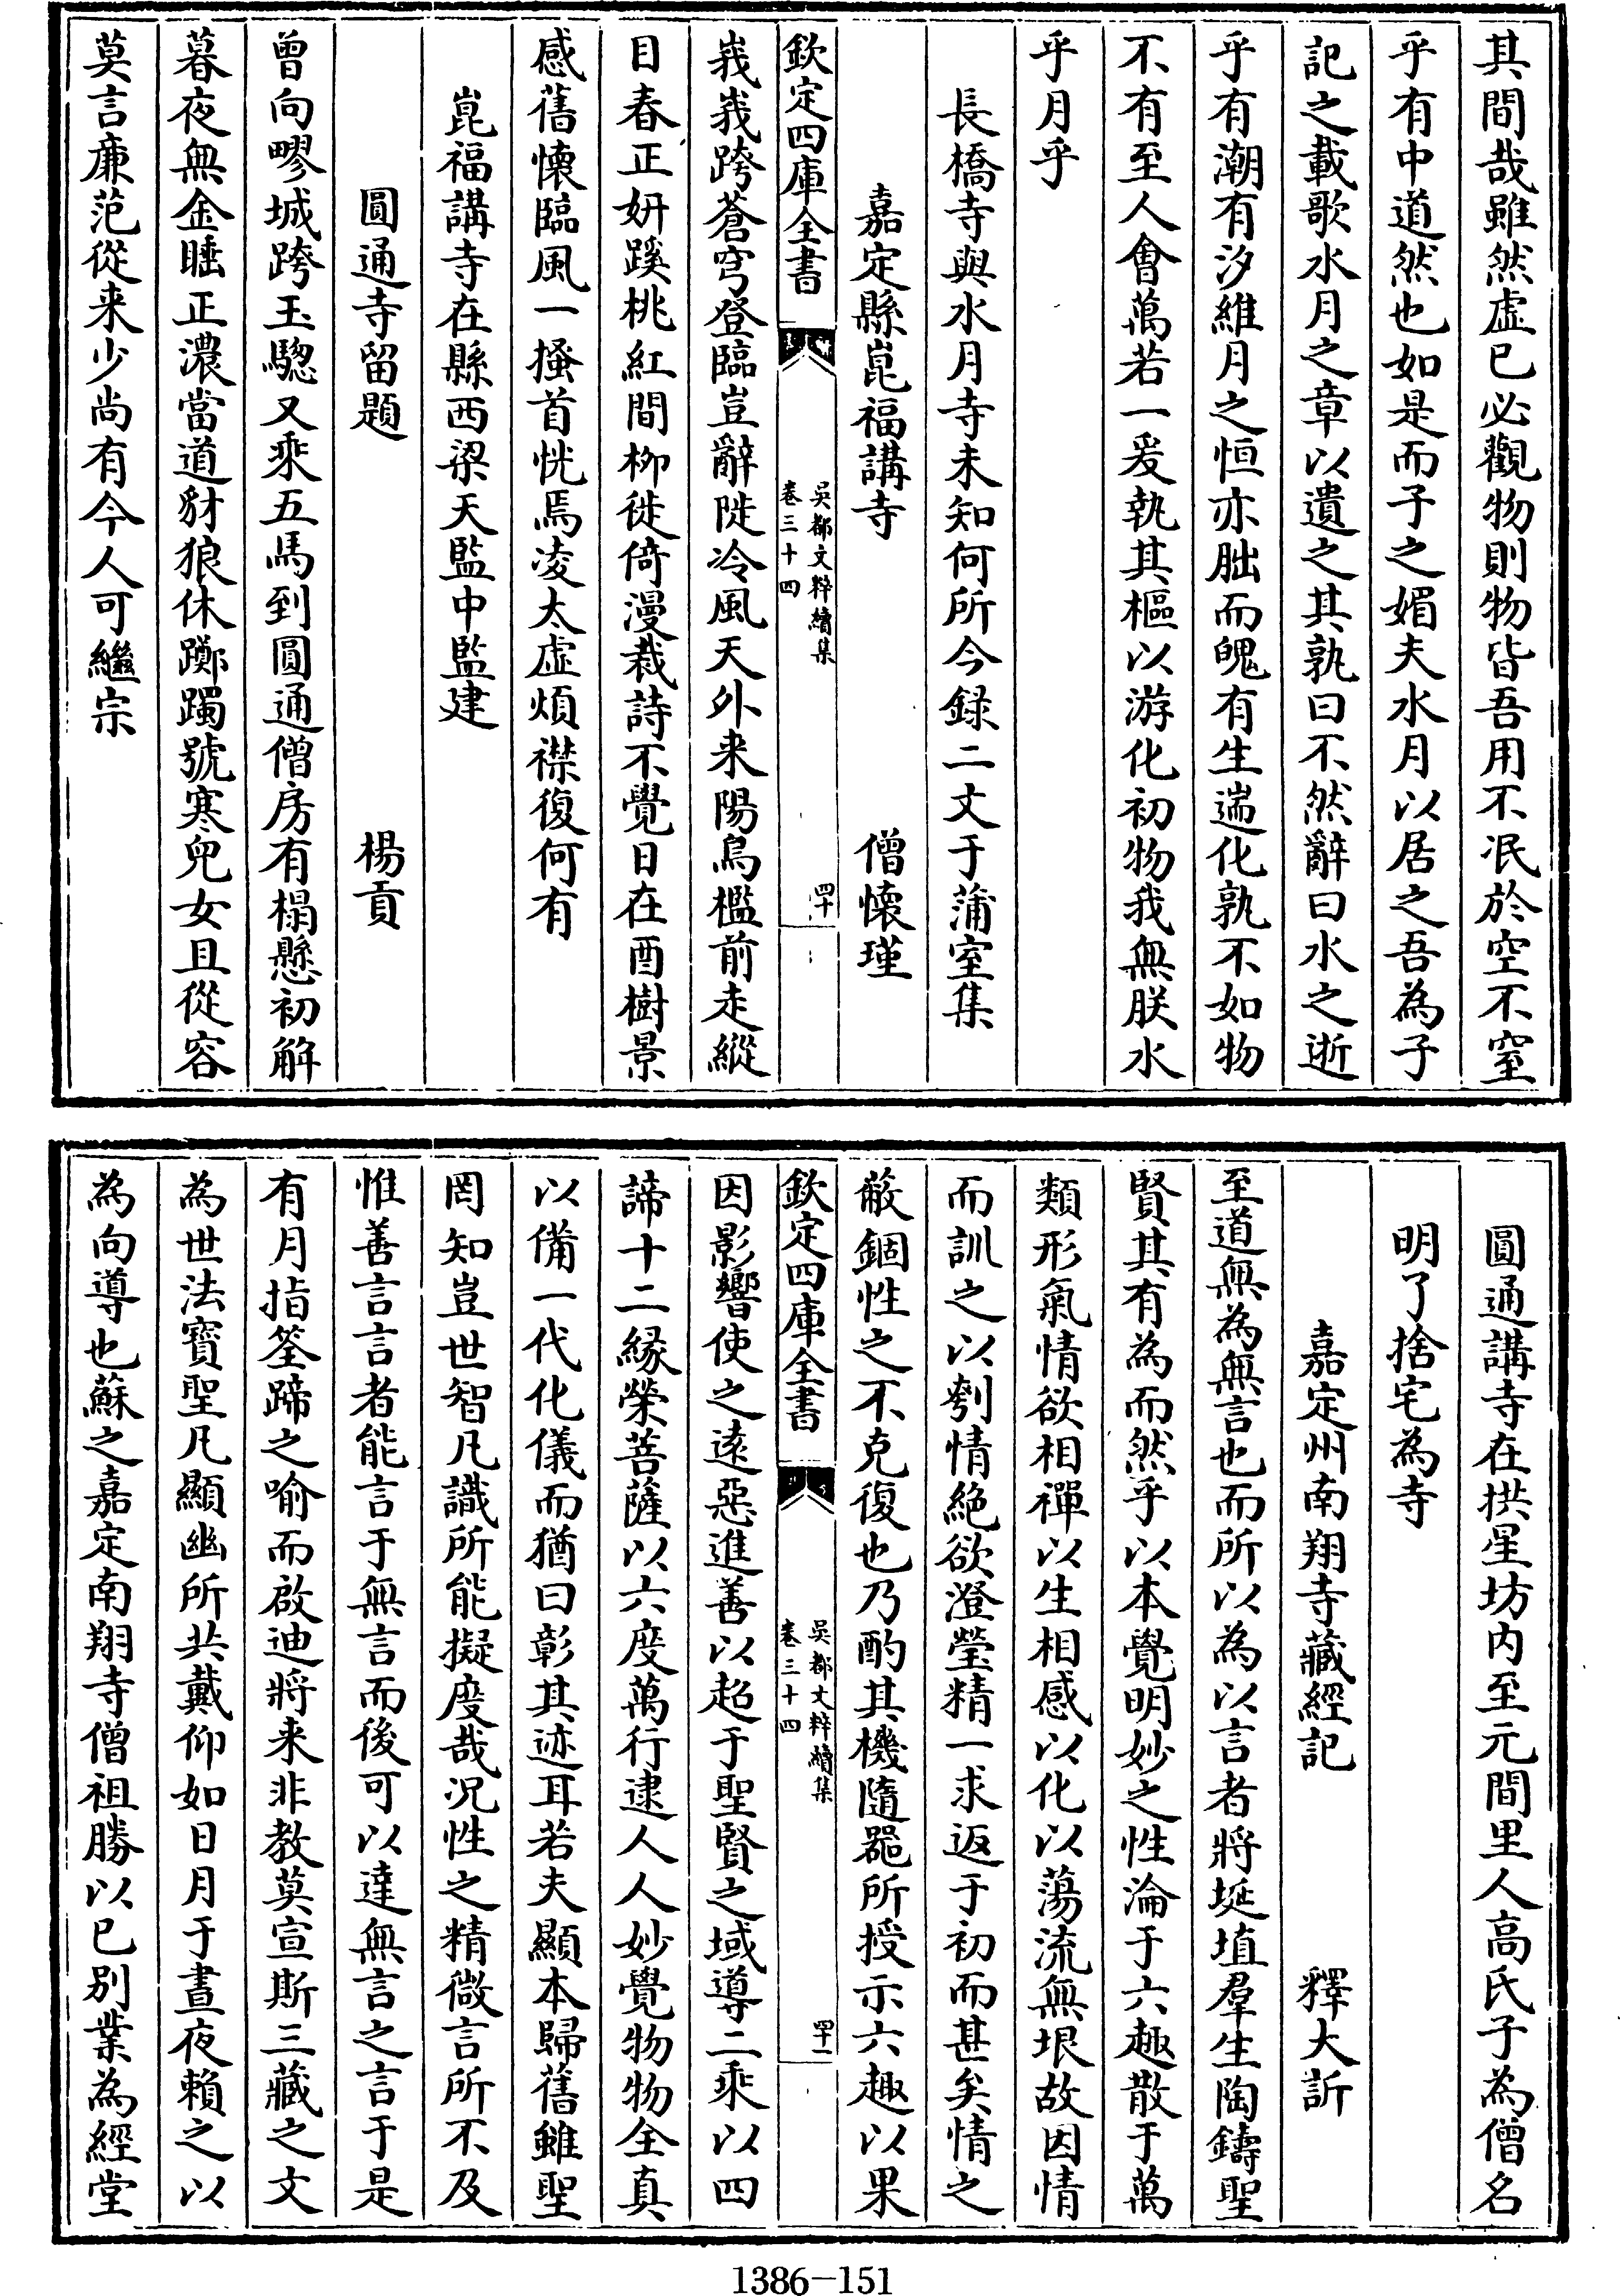 其間哉雖然虛已必觀物則物皆吾用不冺於空不窒
乎有中道然也如是而子之媚夫水月以居之吾為子
記之載歌水月之章以遺之其孰曰不然辭曰水之逝
乎有潮有汐維月之恒亦朏而魄有生遄化孰不如物
不有至人會萬若一爰執其樞以游化初物我無朕水
乎月乎
長橋寺與水月寺未知何所今録二文于蒲室集
嘉定縣崑福講寺 僧懷瑾
欽定四庫全書 吳都文粹續集 卷三十四 四十
峩峩跨蒼穹登臨豈辭陡冷風天外来陽烏檻前走縱
目春正妍蹊桃紅間栁徙倚漫裁詩不覺日在酉樹景
感舊懷臨風一搔首恍焉凌太虛煩襟復何有
崑福講寺在縣西梁天監中監建
圓通寺留題 楊貢
曾向疁城跨玉驄又乘五馬到圓通僧房有榻懸初解
暮夜無金睡正濃當道豺狼休躑躅號寒兒女且從容
莫言亷范從来少尚有今人可繼宗
圓通講寺在拱星坊内至元間里人高氏子為僧名
明了捨宅為寺
嘉定州南翔寺藏經記 釋大訢
至道無為無言也而所以為以言者將埏埴羣生陶鑄聖
賢其有為而然乎以本覺明妙之性淪于六趣散于萬
類形氣情欲相禪以生相感以化以蕩流無垠故因情
而訓之以刳情絶欲澄瑩精一求返于初而甚矣情之
蔽錮性之不克復也乃酌其機隨噐所授示六趣以果
欽定四庫全書 吳都文粹續集 卷三十四 四十一
因影響使之遠惡進善以超于聖賢之域導二乘以四
諦十二縁榮菩薩以六度萬行逮人人妙覺物物全真
以備一代化儀而猶曰彰其迹耳若夫顯本歸舊雖聖
罔知豈世智凡識所能擬度哉况性之精微言所不及
惟善言言者能言于無言而後可以達無言之言于是
有月指筌蹄之喻而啟迪將来非教莫宣斯三藏之文
為世法寶聖凡顯幽所共戴仰如日月于晝夜賴之以
為向導也蘇之嘉定南翔寺僧祖勝以已别業為經堂
1386-151